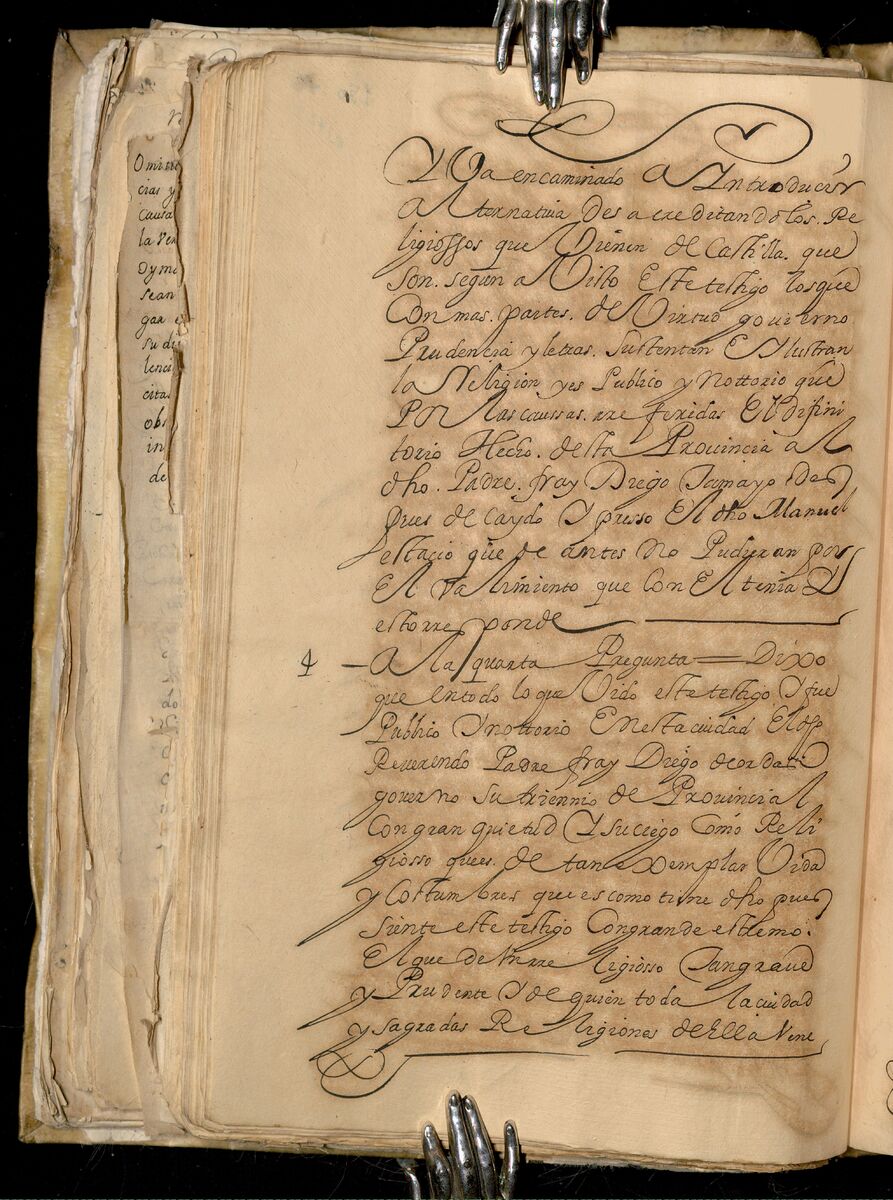 Omitie
cias y
causa
la ver
Dyme
sean
gar e
su di
lenci
cita
obs
in
de
Y Va encaminado A Yntroducir
Alternatiua desacreditandolos. Re
ligiossos que Vienen de Castilla. que
son. segun a Visto Este testigo los que
Con mas. partes. de Virtud gouierno
Prudencia y letras. sustentan E Ylustran
la Religion yes Publico y Nottorio que
Por las caussas. rreferidas El difini
torio Hecho. desta Prouincia al
dho. Padre. fray Diego Tamayo des
pues de Caydo Y presso El dho Manuel
estacio que de antes No Pudieran por
El Valimiento que Con El tenia Y
esto rresponde
4 — A la quarta Pregunta = Dixo
que entodo lo que Vido este testigo Y fue
Publico Y nottorio En esta ciudad El dho
Reverendo Padre fray Diego de
governo su triennio de Prouincial
Con gran quietud Y suciego Como Reli
giosso quees. de tan Exemplar Vida
y Costumbres que es como tiene dho pues
siente este testigo Con grande estremo.
El que de Vn rreligiosso Tan graue
y Prudente Y de quien toda la ciudad
y sagradas Religiones de Ella Vene